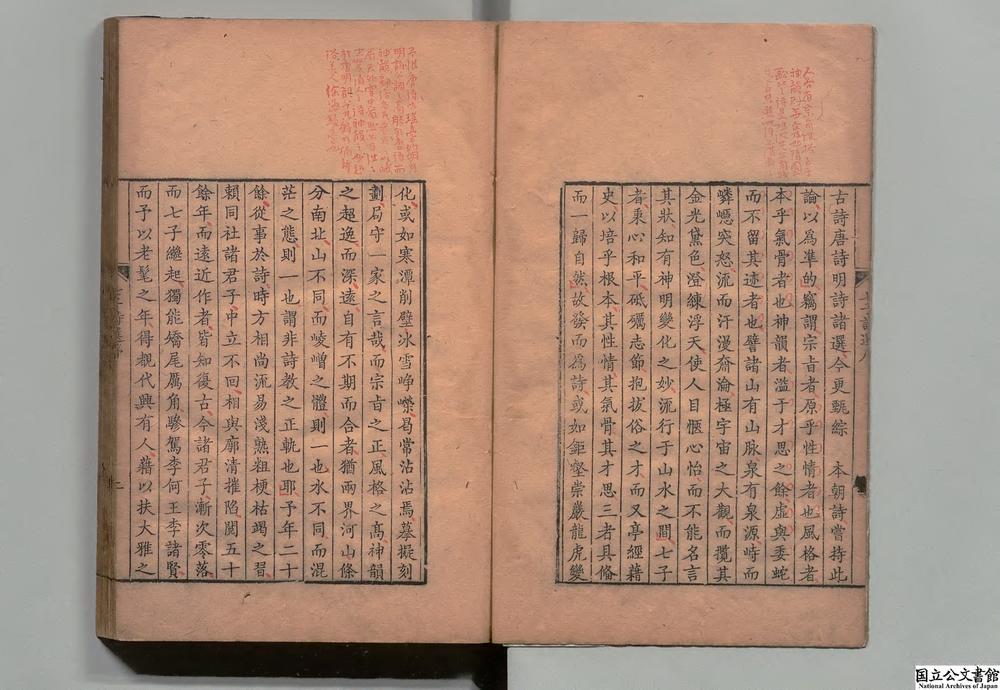 古詩唐詩明詩諸選今更甄綜　本朝詩嘗持此
論以爲準的竊謂宗旨者原乎性情者也風格者
本乎氣骨者也神韻者溢于才思之餘虛與委蛇
而不留其迹者也譬諸山有山脉泉有泉源峙而
嶙㟯突怒流而汗漫奫淪極宇宙之大觀而攬其
金光黛色澄練浮天使人目愜心怡而不能名言
其狀知有神明變化之妙流行于山水之間七子
者秉心和平砥礪志節抱拔俗之才而又亭經藉
史以培乎根本其性情其氣骨其才思三者具備
而一歸自然故發而爲詩或如鉅壑崇巖龍虎變
化或如寒潭削壁冰雪崢嶸曷常沾沾焉摹擬刻
劃局守一家之言哉而宗旨之正風格之高神韻
之超逸而深遠自有不期而合者猶兩界河山條
分南北山不同而崚嶒之體則一也水不同而混
茫之態則一也謂非詩教之正軌也耶予年二十
餘從事於詩時方相尚流易淺熟粗梗枯竭之習
賴同社諸君子中立不回相與廓清摧陷閱五十
餘年而遠近作者皆知復古今諸君子漸次零落
而七子繼起獨能矯尾厲角驂駕李何王李諸賢
而予以老髦之年得覩代興有人藉以扶大雅之
國立公文書館
National Archives of Japan